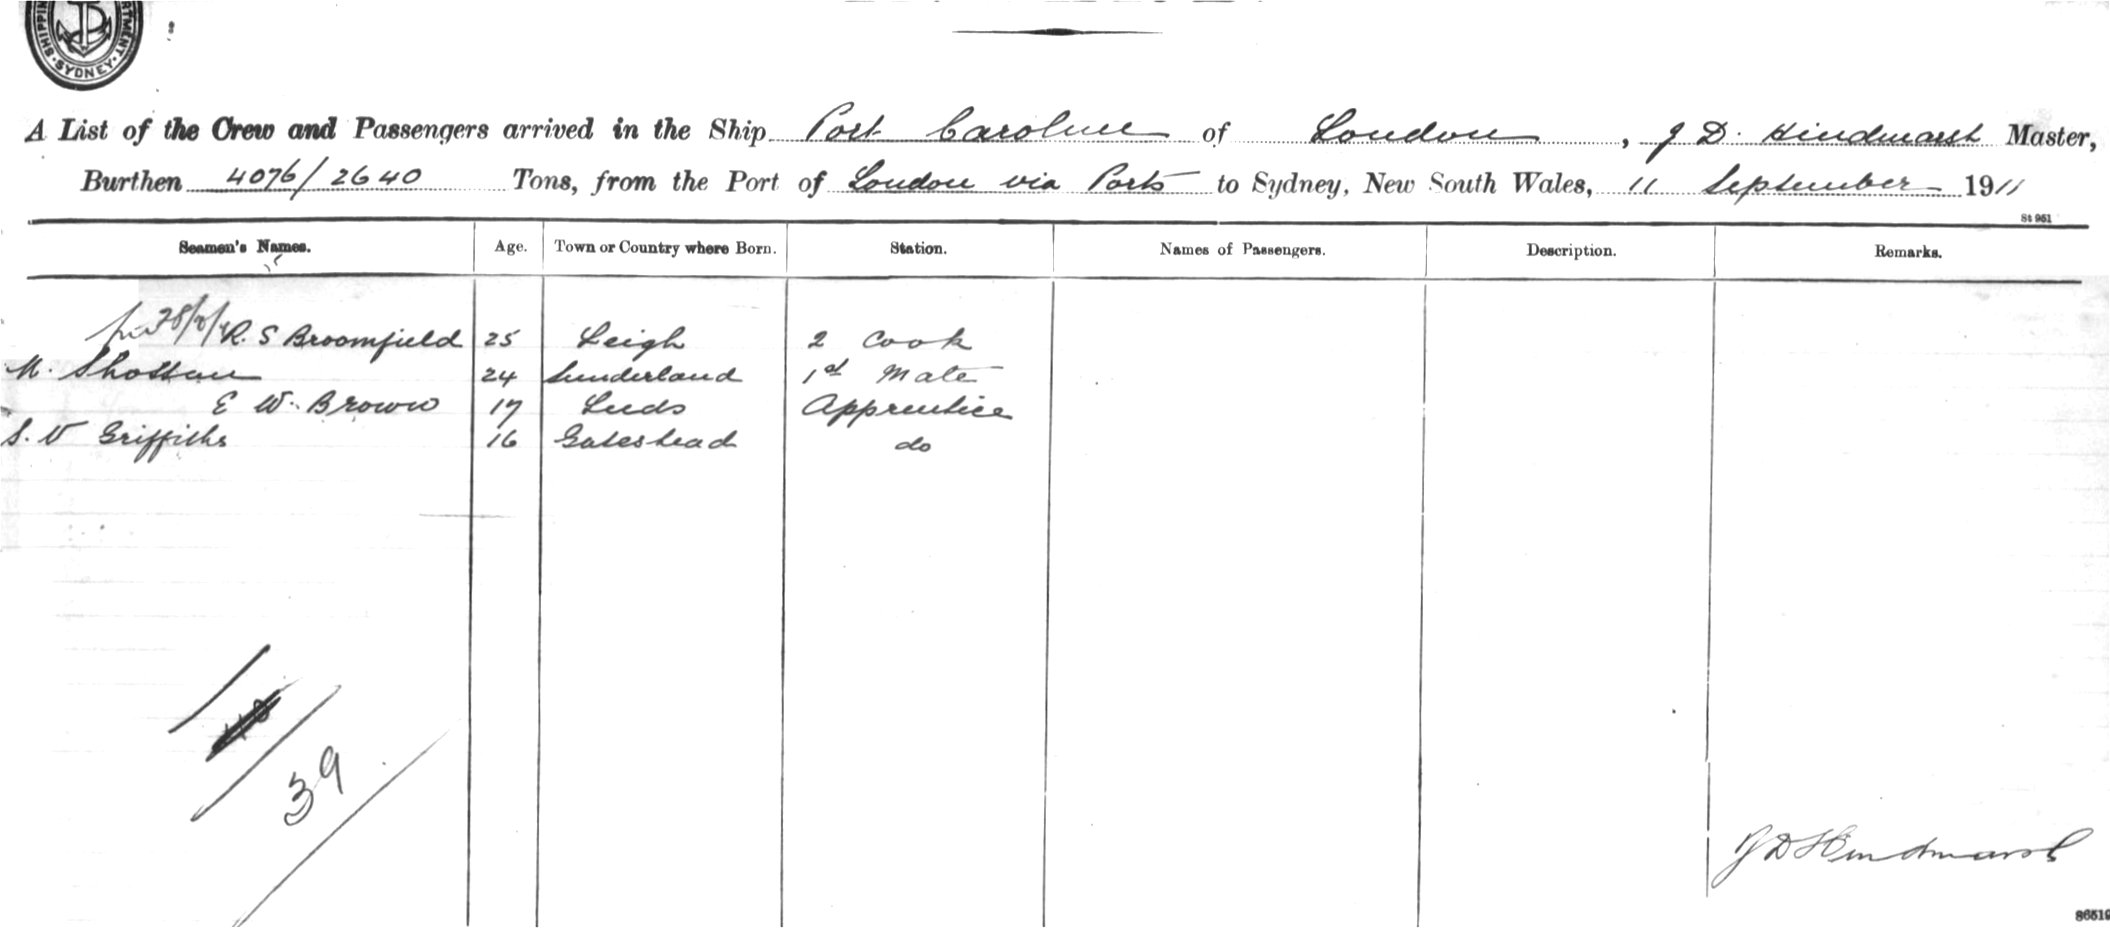 SHIPPIN RTMENT. SYDNEY.
A List of the Crew and Passengers arrived in the Ship Port Caroline of London, J D. Hindmarsh Master,
Burthen 4076/2640 Tons, from the Port of London via Ports to Sydney, New South Wales, 11 September 1911
St 951
Seamen's Names. Age. Town or Country where Born. Station. Names of Passengers. Description. Remarks.
R. S Broomfield 25 Leigh 2 Cook
M. Shottan 24 Sunderland 1st Mate
E W. Brown 17 Leeds Apprentice
S. V Griffiths 16 Gateshead do
39
J D Hindmarsh
86519